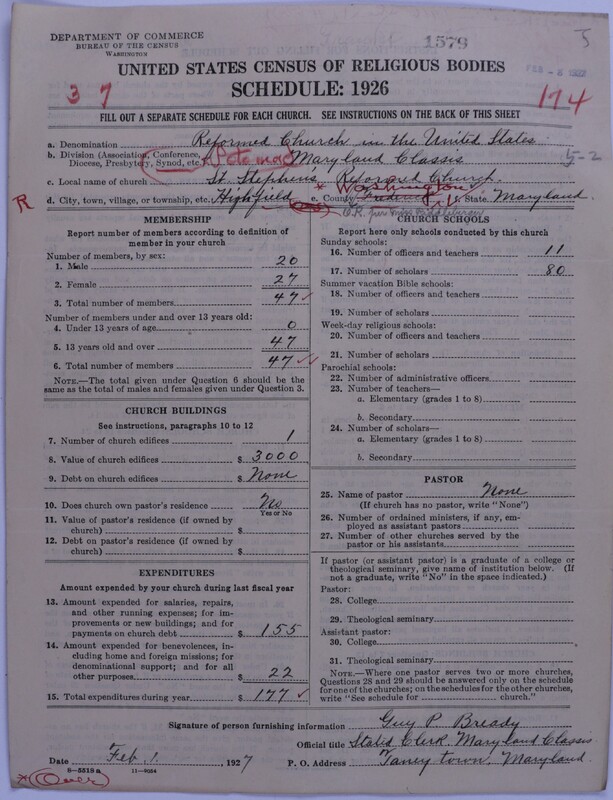 DEPARTMENT OF COMMERCE
BUREAU OF THE CENSUS
WASHINGTON
1579
UNITED STATES CENSUS OF RELIGIOUS BODIES
SCHEDULE: 1926
3 7
174
FILL OUT A SEPARATE SCHEDULE FOR EACH CHURCH. SEE INSTRUCTIONS ON THE BACK OF THIS SHEET
a. Denomination Reformed Church in the United States
b. Division (Association, Conference, Diocese, Presbytery, Synod, etc.) Potomac Maryland Classis
5-2
c. Local name of church St. Stephens Reformed Church
* Washington
R
d. City, town, village, or township, etc. Highfield e. County Frederick f. State Maryland
MEMBERSHIP
Report number of members according to definition of member in your church
Number of members, by sex:
1. Male 20
2. Female 27
3. Total number of members 47
Number of members under and over 13 years old:
4. Under 13 years of age 0
5. 13 years old and over 47
6. Total number of members 47
NOTE.—The total given under Question 6 should be the same as the total of males and females given under Question 3.
CHURCH BUILDINGS
See instructions, paragraphs 10 to 12
7. Number of church edifices 1
8. Value of church edifices $ 3000
9. Debt on church edifices $ None
10. Does church own pastor's residence No
Yes or No
11. Value of pastor's residence (if owned by church) $
12. Debt on pastor's residence (if owned by church) $
EXPENDITURES
Amount expended by your church during last fiscal year
13. Amount expended for salaries, repairs, and other running expenses; for improvements or new buildings; and for payments on church debt $ 155
14. Amount expended for benevolences, including home and foreign missions; for denominational support; and for all other purposes $ 22
15. Total expenditures during year $ 177
CHURCH SCHOOLS
Report here only schools conducted by this church
Sunday schools:
16. Number of officers and teachers 11
17. Number of scholars 80
Summer vacation Bible schools:
18. Number of officers and teachers
19. Number of scholars
Week-day religious schools:
20. Number of officers and teachers
21. Number of scholars
Parochial schools:
22. Number of administrative officers
23. Number of teachers—
a. Elementary (grades 1 to 8)
b. Secondary
24. Number of scholars—
a. Elementary (grades 1 to 8)
b. Secondary
PASTOR
25. Name of pastor None
(If church has no pastor, write "None")
26. Number of ordained ministers, if any, employed as assistant pastors
27. Number of other churches served by the pastor or his assistants
If pastor (or assistant pastor) is a graduate of a college or theological seminary, give name of institution below. (If not a graduate, write "No" in the space indicated.)
Pastor:
28. College
29. Theological seminary
Assistant pastor:
30. College
31. Theological seminary
NOTE.—Where one pastor serves two or more churches, Questions 28 and 29 should be answered only on the schedule for one of the churches; on the schedules for the other churches, write "See schedule for church."
Signature of person furnishing information Guy P. Bready
Official title Stated Clerk, Maryland Classis
Date Feb. 1, 1927 P. O. Address Taneytown, Maryland.
8—5518a 11—9054
* Over